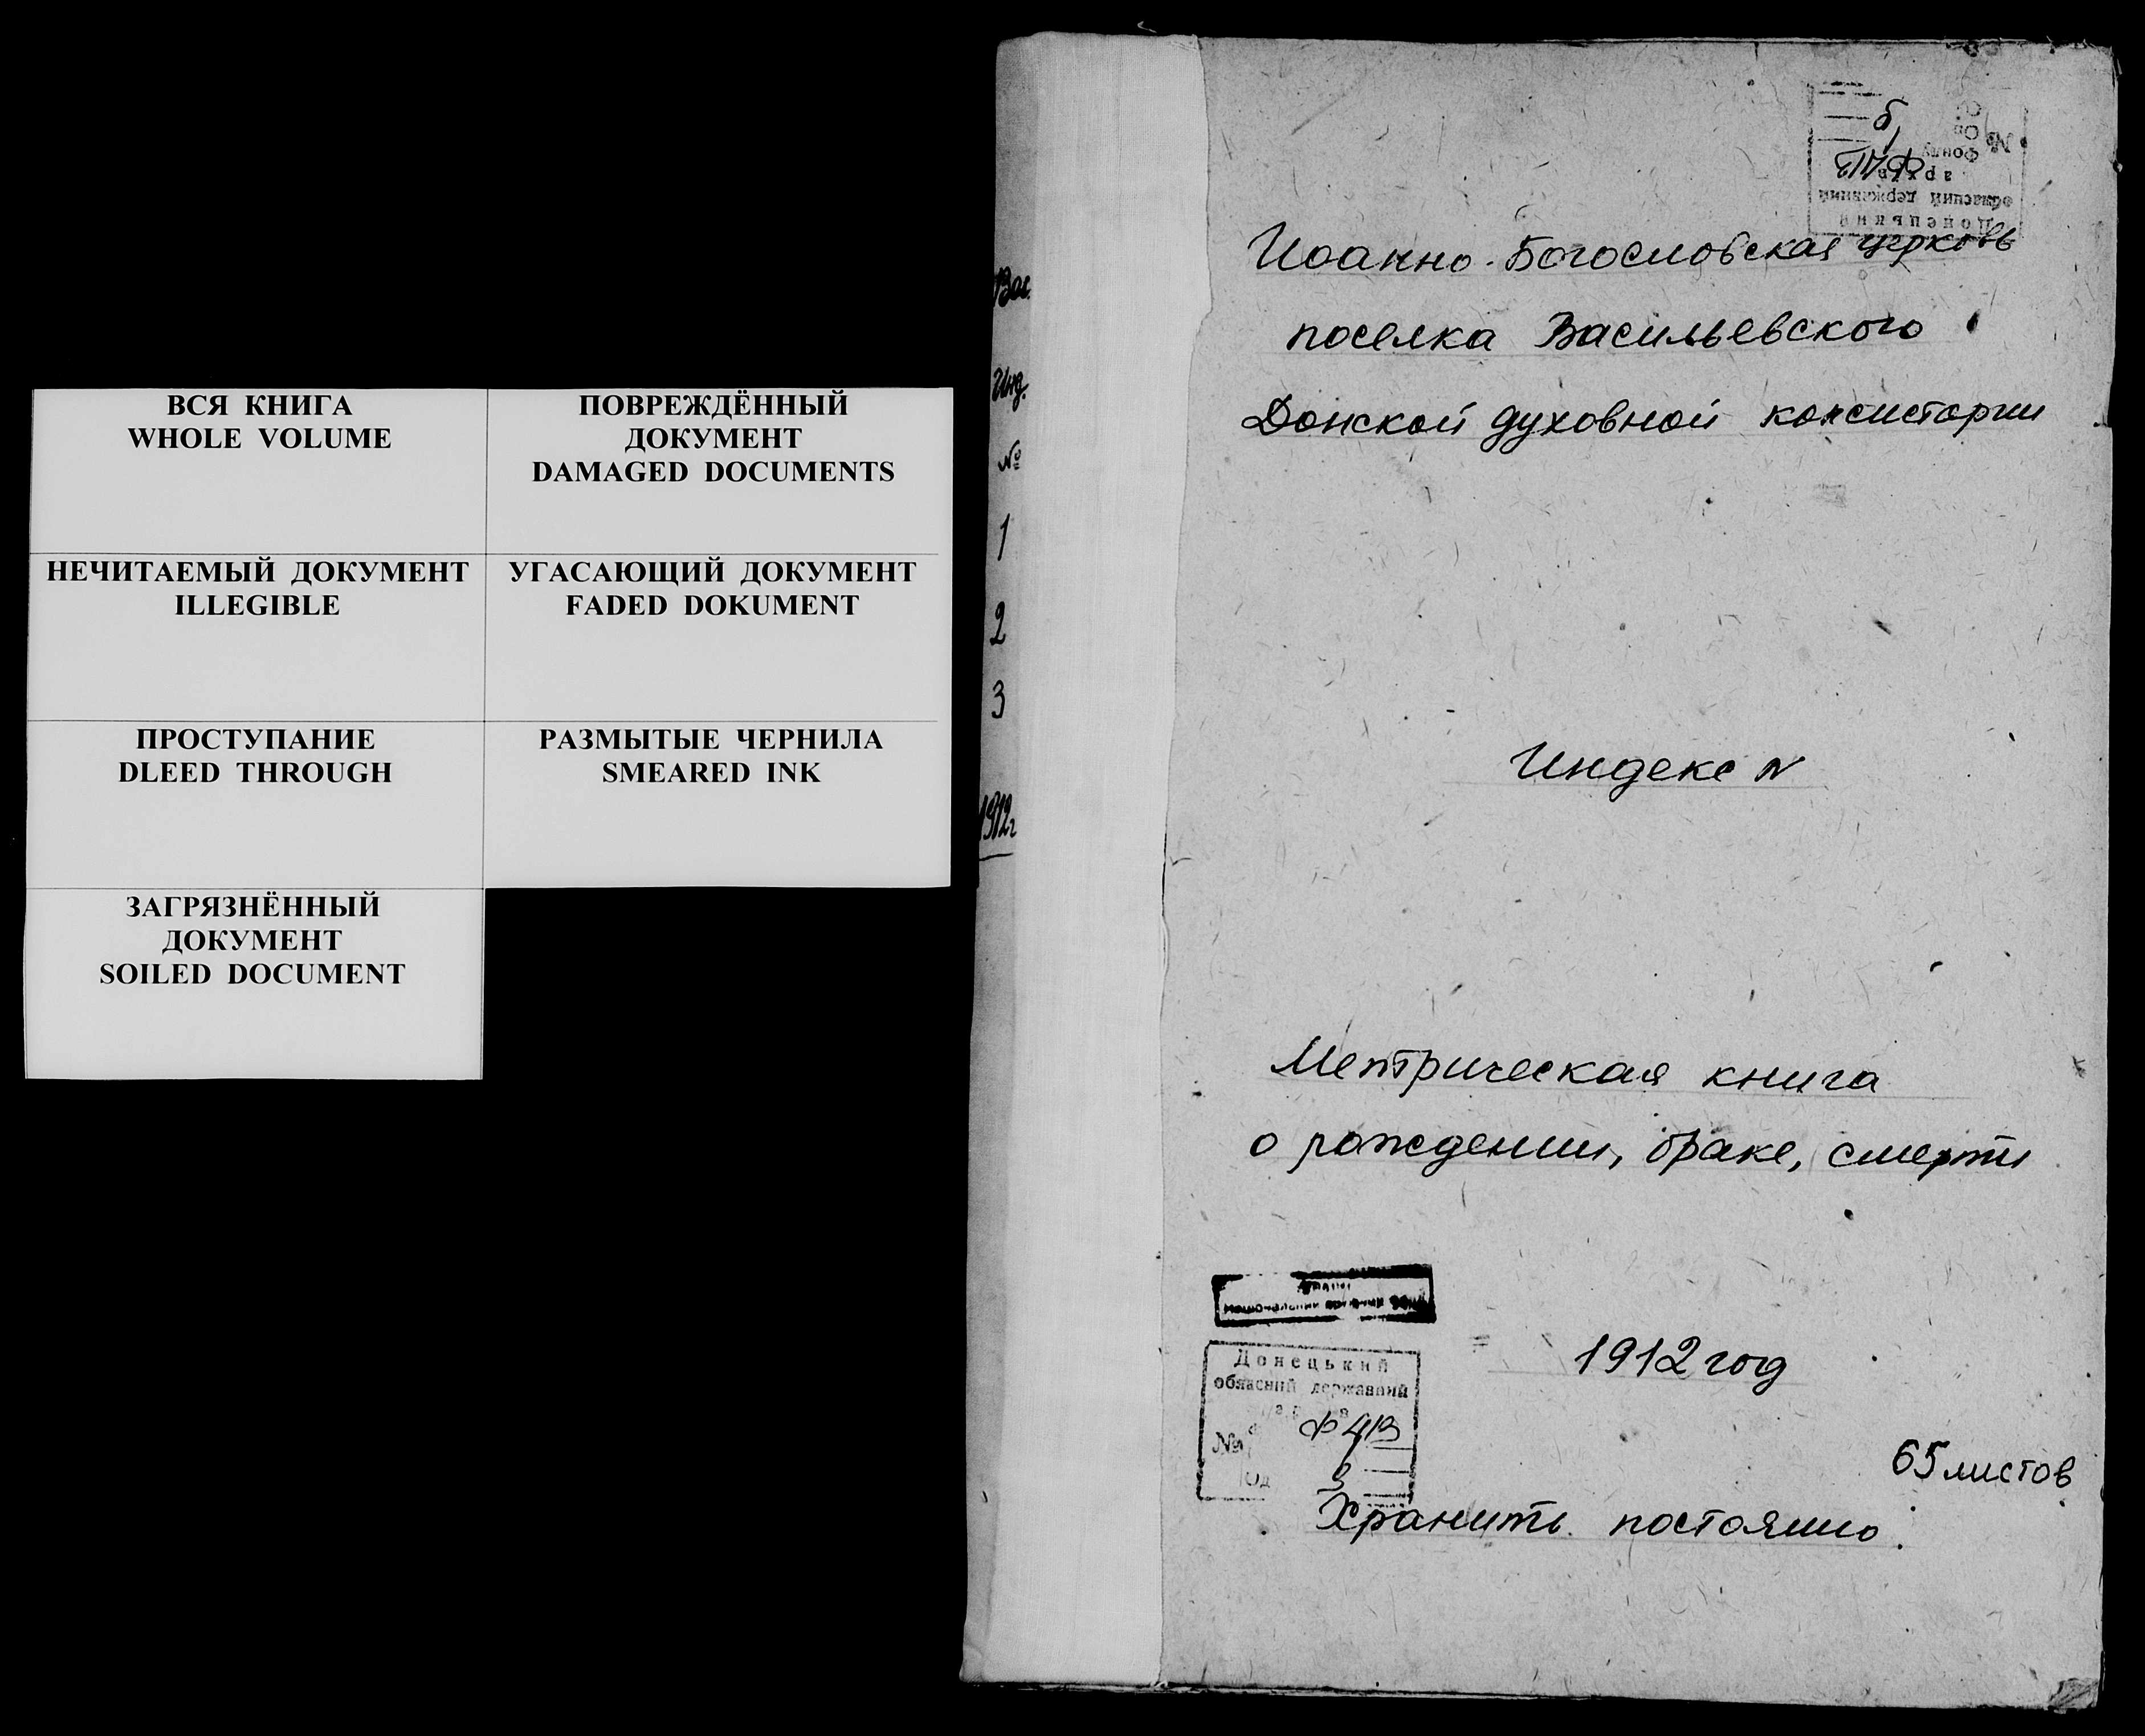 ВСЯ КНИГА
WHOLE VOLUME
ПОВРЕЖДЁННЫЙ
ДОКУМЕНТ
DAMAGED DOCUMENTS
НЕЧИТАЕМЫЙ ДОКУМЕНТ
ILLEGIBLE
УГАСАЮЩИЙ ДОКУМЕНТ
FADED DOKUMENT
ПРОСТУПАНИЕ
DLEED THROUGH
РАЗМЫТЫЕ ЧЕРНИЛА
SMEARED INK
ЗАГРЯЗНЁННЫЙ
ДОКУМЕНТ
SOILED DOCUMENT
Вас.
Инд.
№
1
2
3
1912г
Донецький
обласний державний
архів
Фонду
Оп
№
Иоанно-Богословская церковь
поселка Васильевского
Донской духовной консистории
Индекс N
Метрическая книга
о рождении, браке, смерти
1912 год
65 листов
Донецький
обласний державний
№
Од
3
Хранить постоянно.